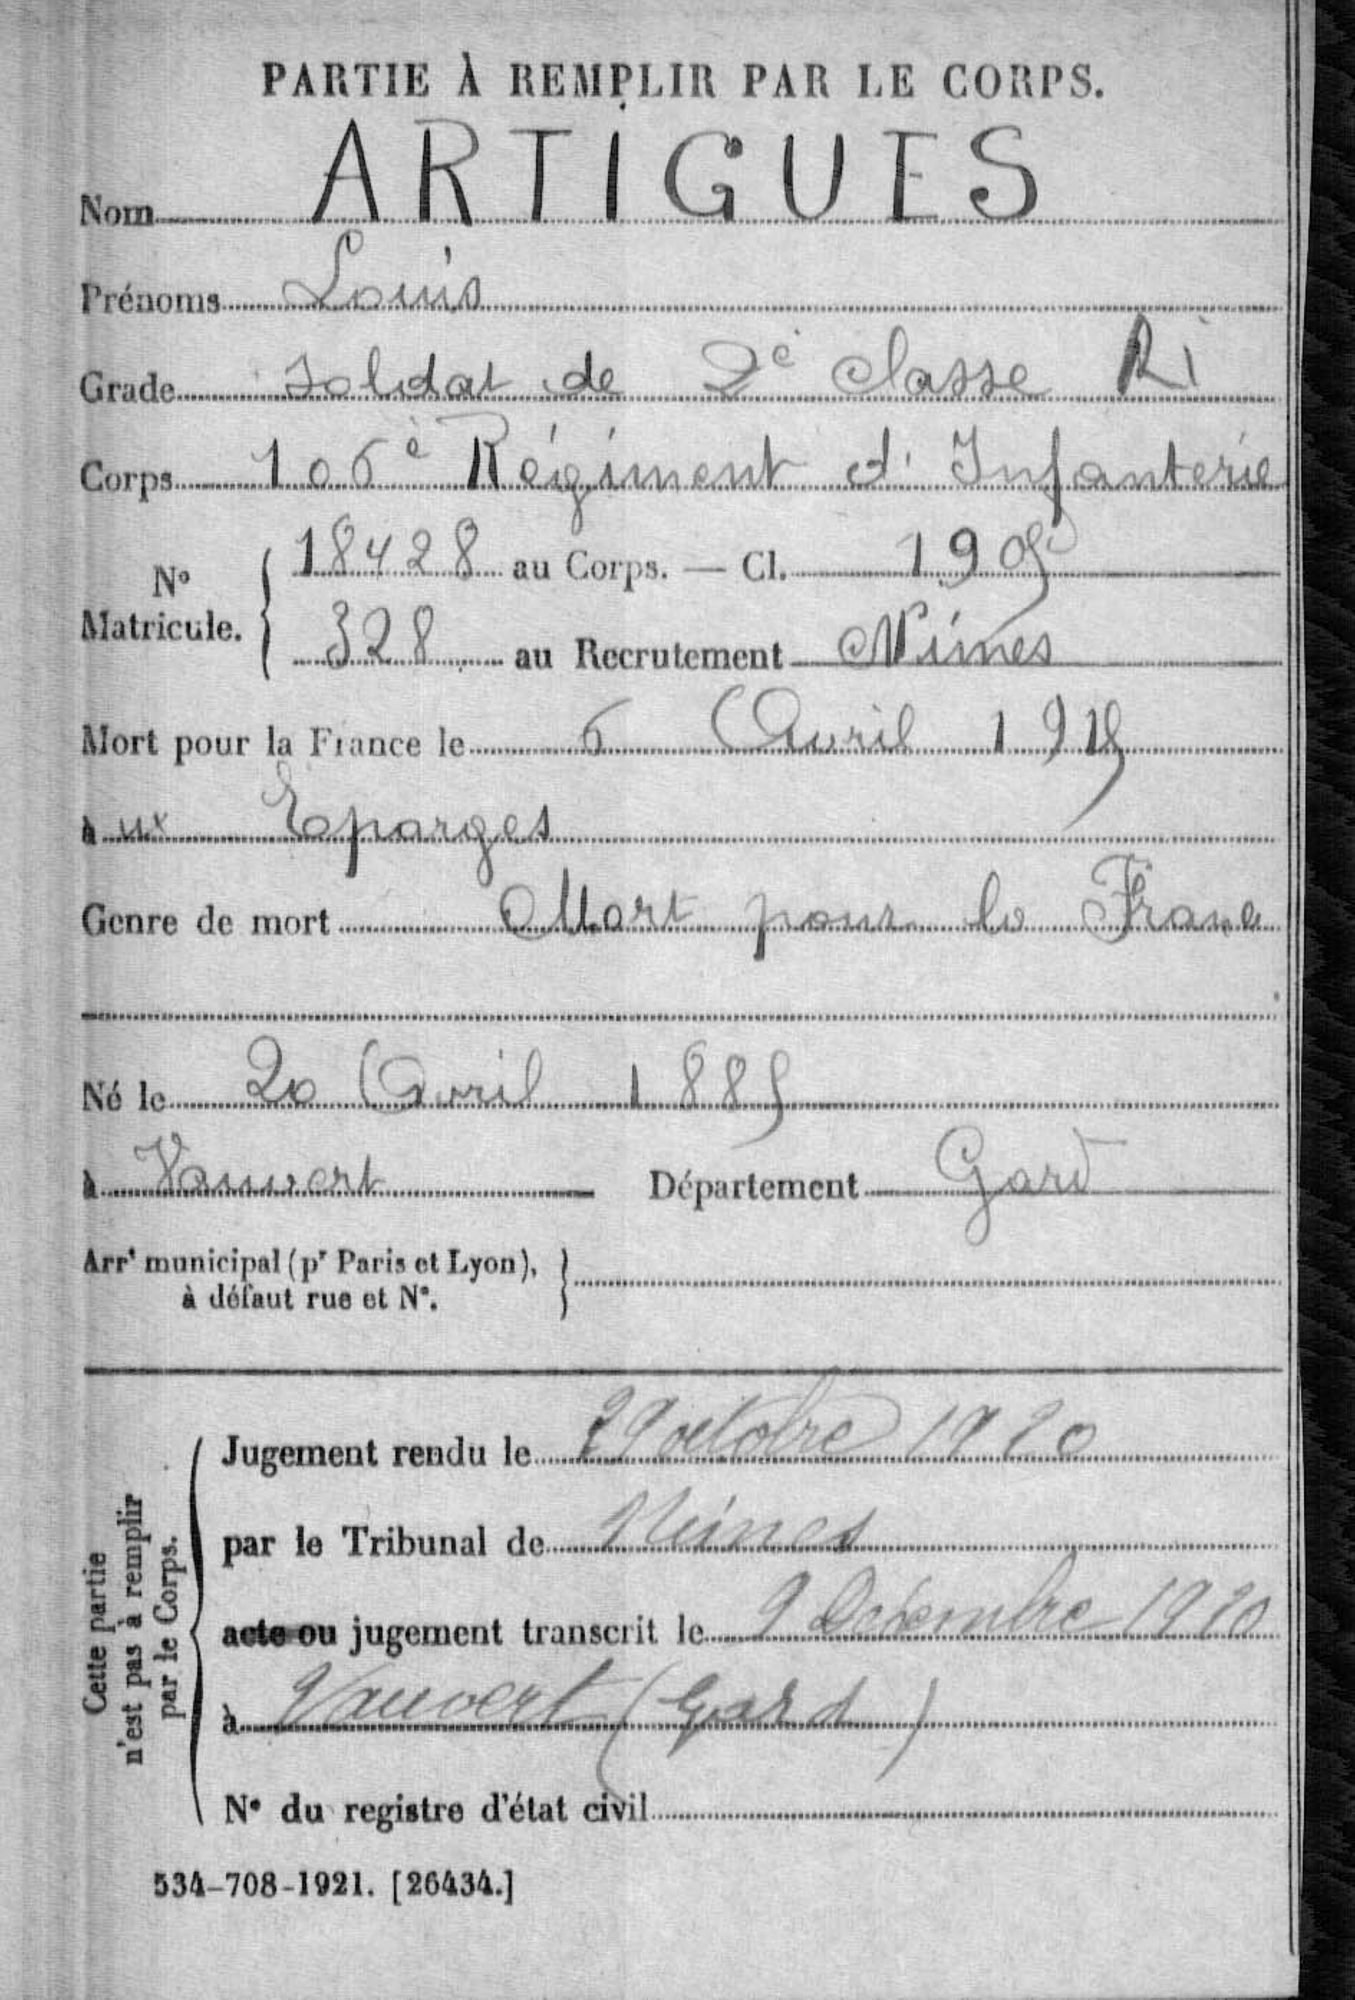 PARTIE À REMPLIR PAR LE CORPS.
Nom ARTIGUES
Prénoms Louis
Grade Soldat de 2e classe Ri
Corps 106e Régiment d'Infanterie
No Matricule. { 18428 au Corps. — Cl. 1905
328 au Recrutement Nimes
Mort pour la France le 6 Avril 1915
à ux Eparges
Genre de mort Mort pour la France
Né le 20 Avril 1885
à Vauvert Département Gard
Arrt municipal (pr Paris et Lyon), }
à défaut rue et No.
Cette partie
n'est pas à remplir
par le Corps.
Jugement rendu le 29 octobre 1920
par le Tribunal de Nimes
acte ou jugement transcrit le 9 Décembre 1920
à Vauvert (Gard)
No du registre d'état civil
534-708-1921. [26434.]